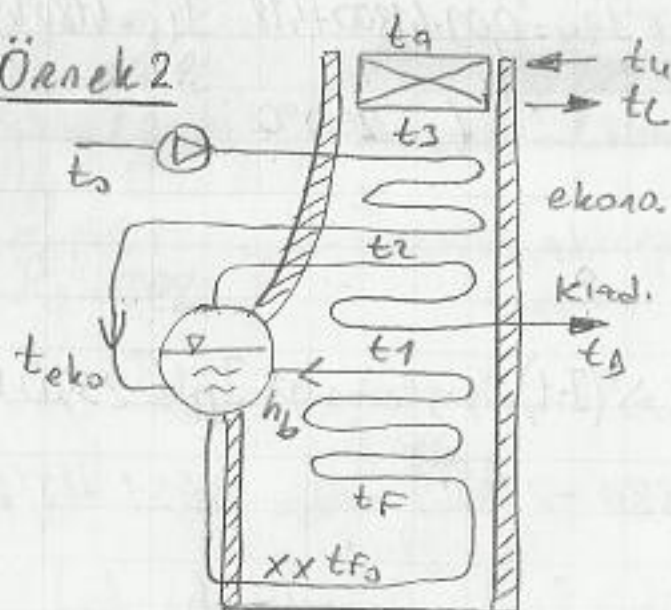 Örnek 2
ta
tu
tL
t3
t0
ekono.
t2
kızd.
teko
t1
tD
hb
tF
xx tF0